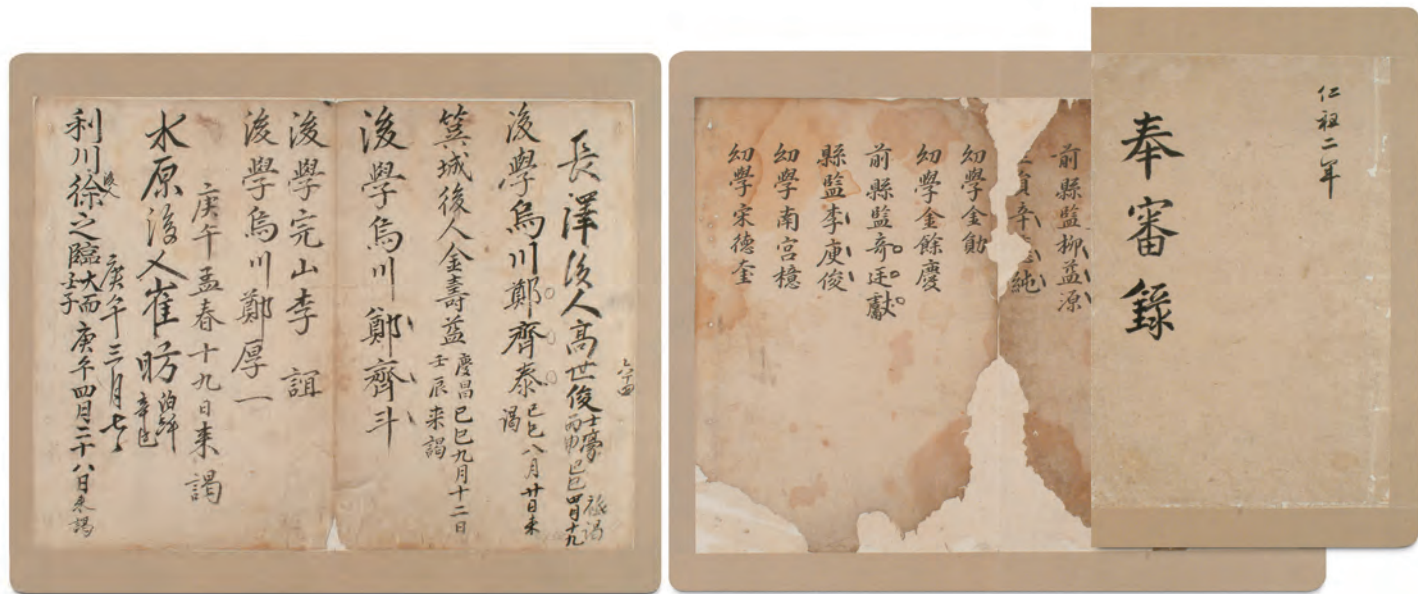 仁祖二年
奉審錄
前縣監柳益源
辛 純
幼學金勛
幼學金餘慶
前縣監奇廷獻
縣監李庚俊
幼學南宮檍
幼學宋德奎
長澤後人高世俊 士豪 丙申 己巳四月十九 祗謁
後學烏川鄭齊泰 己巳八月廿日来謁
箕城後人金壽益 慶昌己巳九月十二日 壬辰来謁
後學烏川 鄭齊斗
後學完山李 誼
後學烏川鄭厚一
庚午孟春十九日来謁
水原後人崔昉
庚午三月七
利川後徐之臨 大而 壬子 庚午四月二十八日来謁